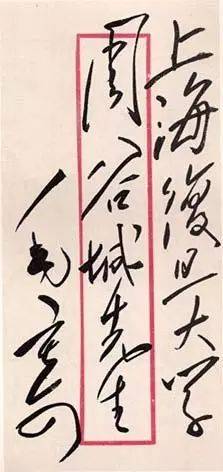 上海復旦大学
周谷城先生
毛寄